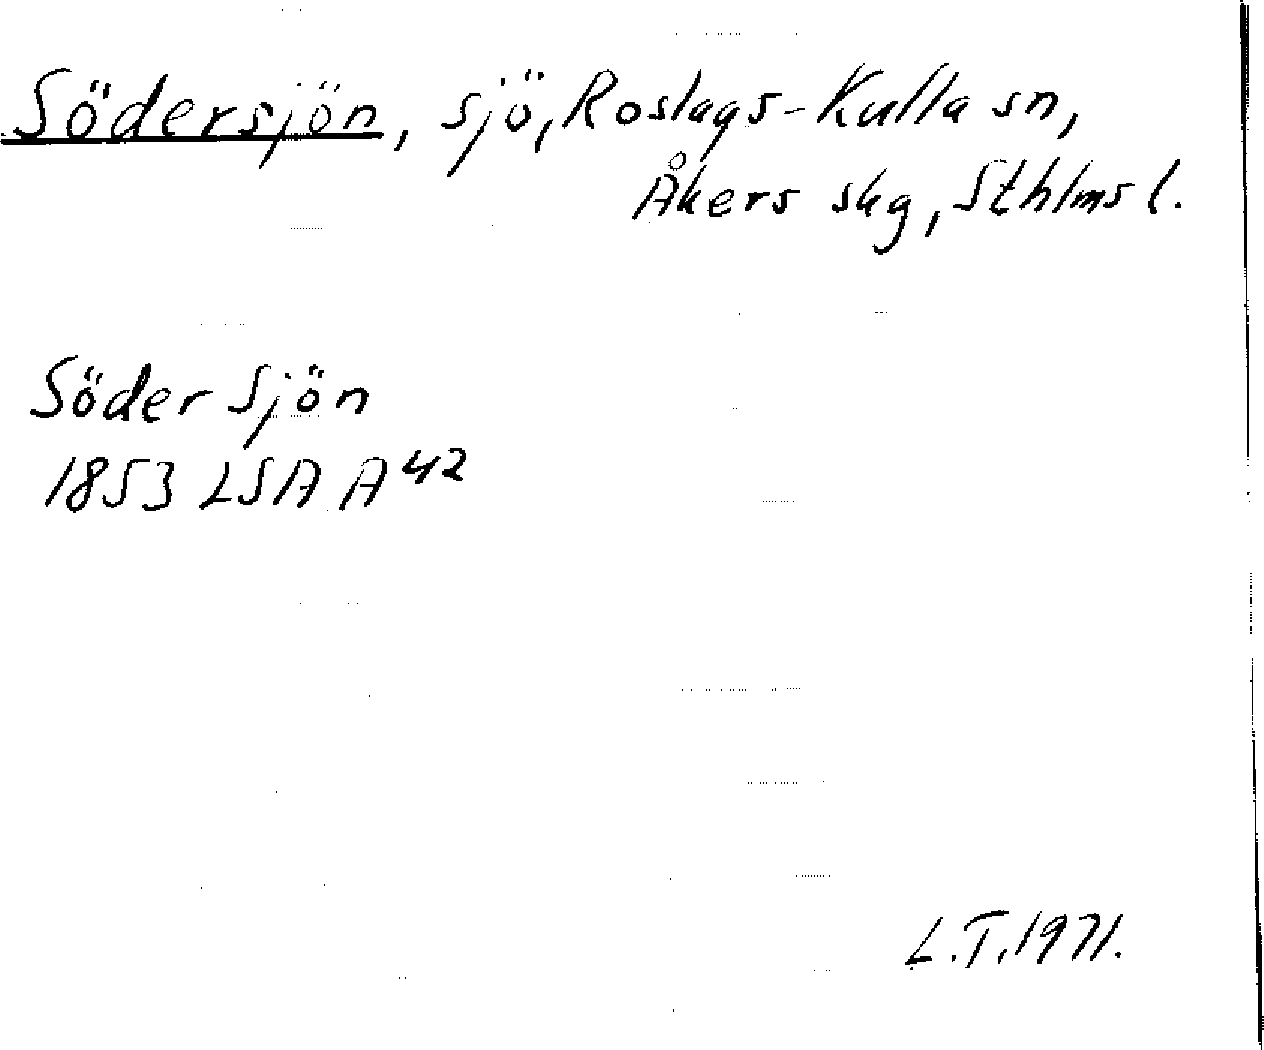 Södersjön, sjö, Roslags-Kulla sn,
Åkers skg, Sthlms l.
Söder Sjön
1853 LSA A 42
L.T. 1971.